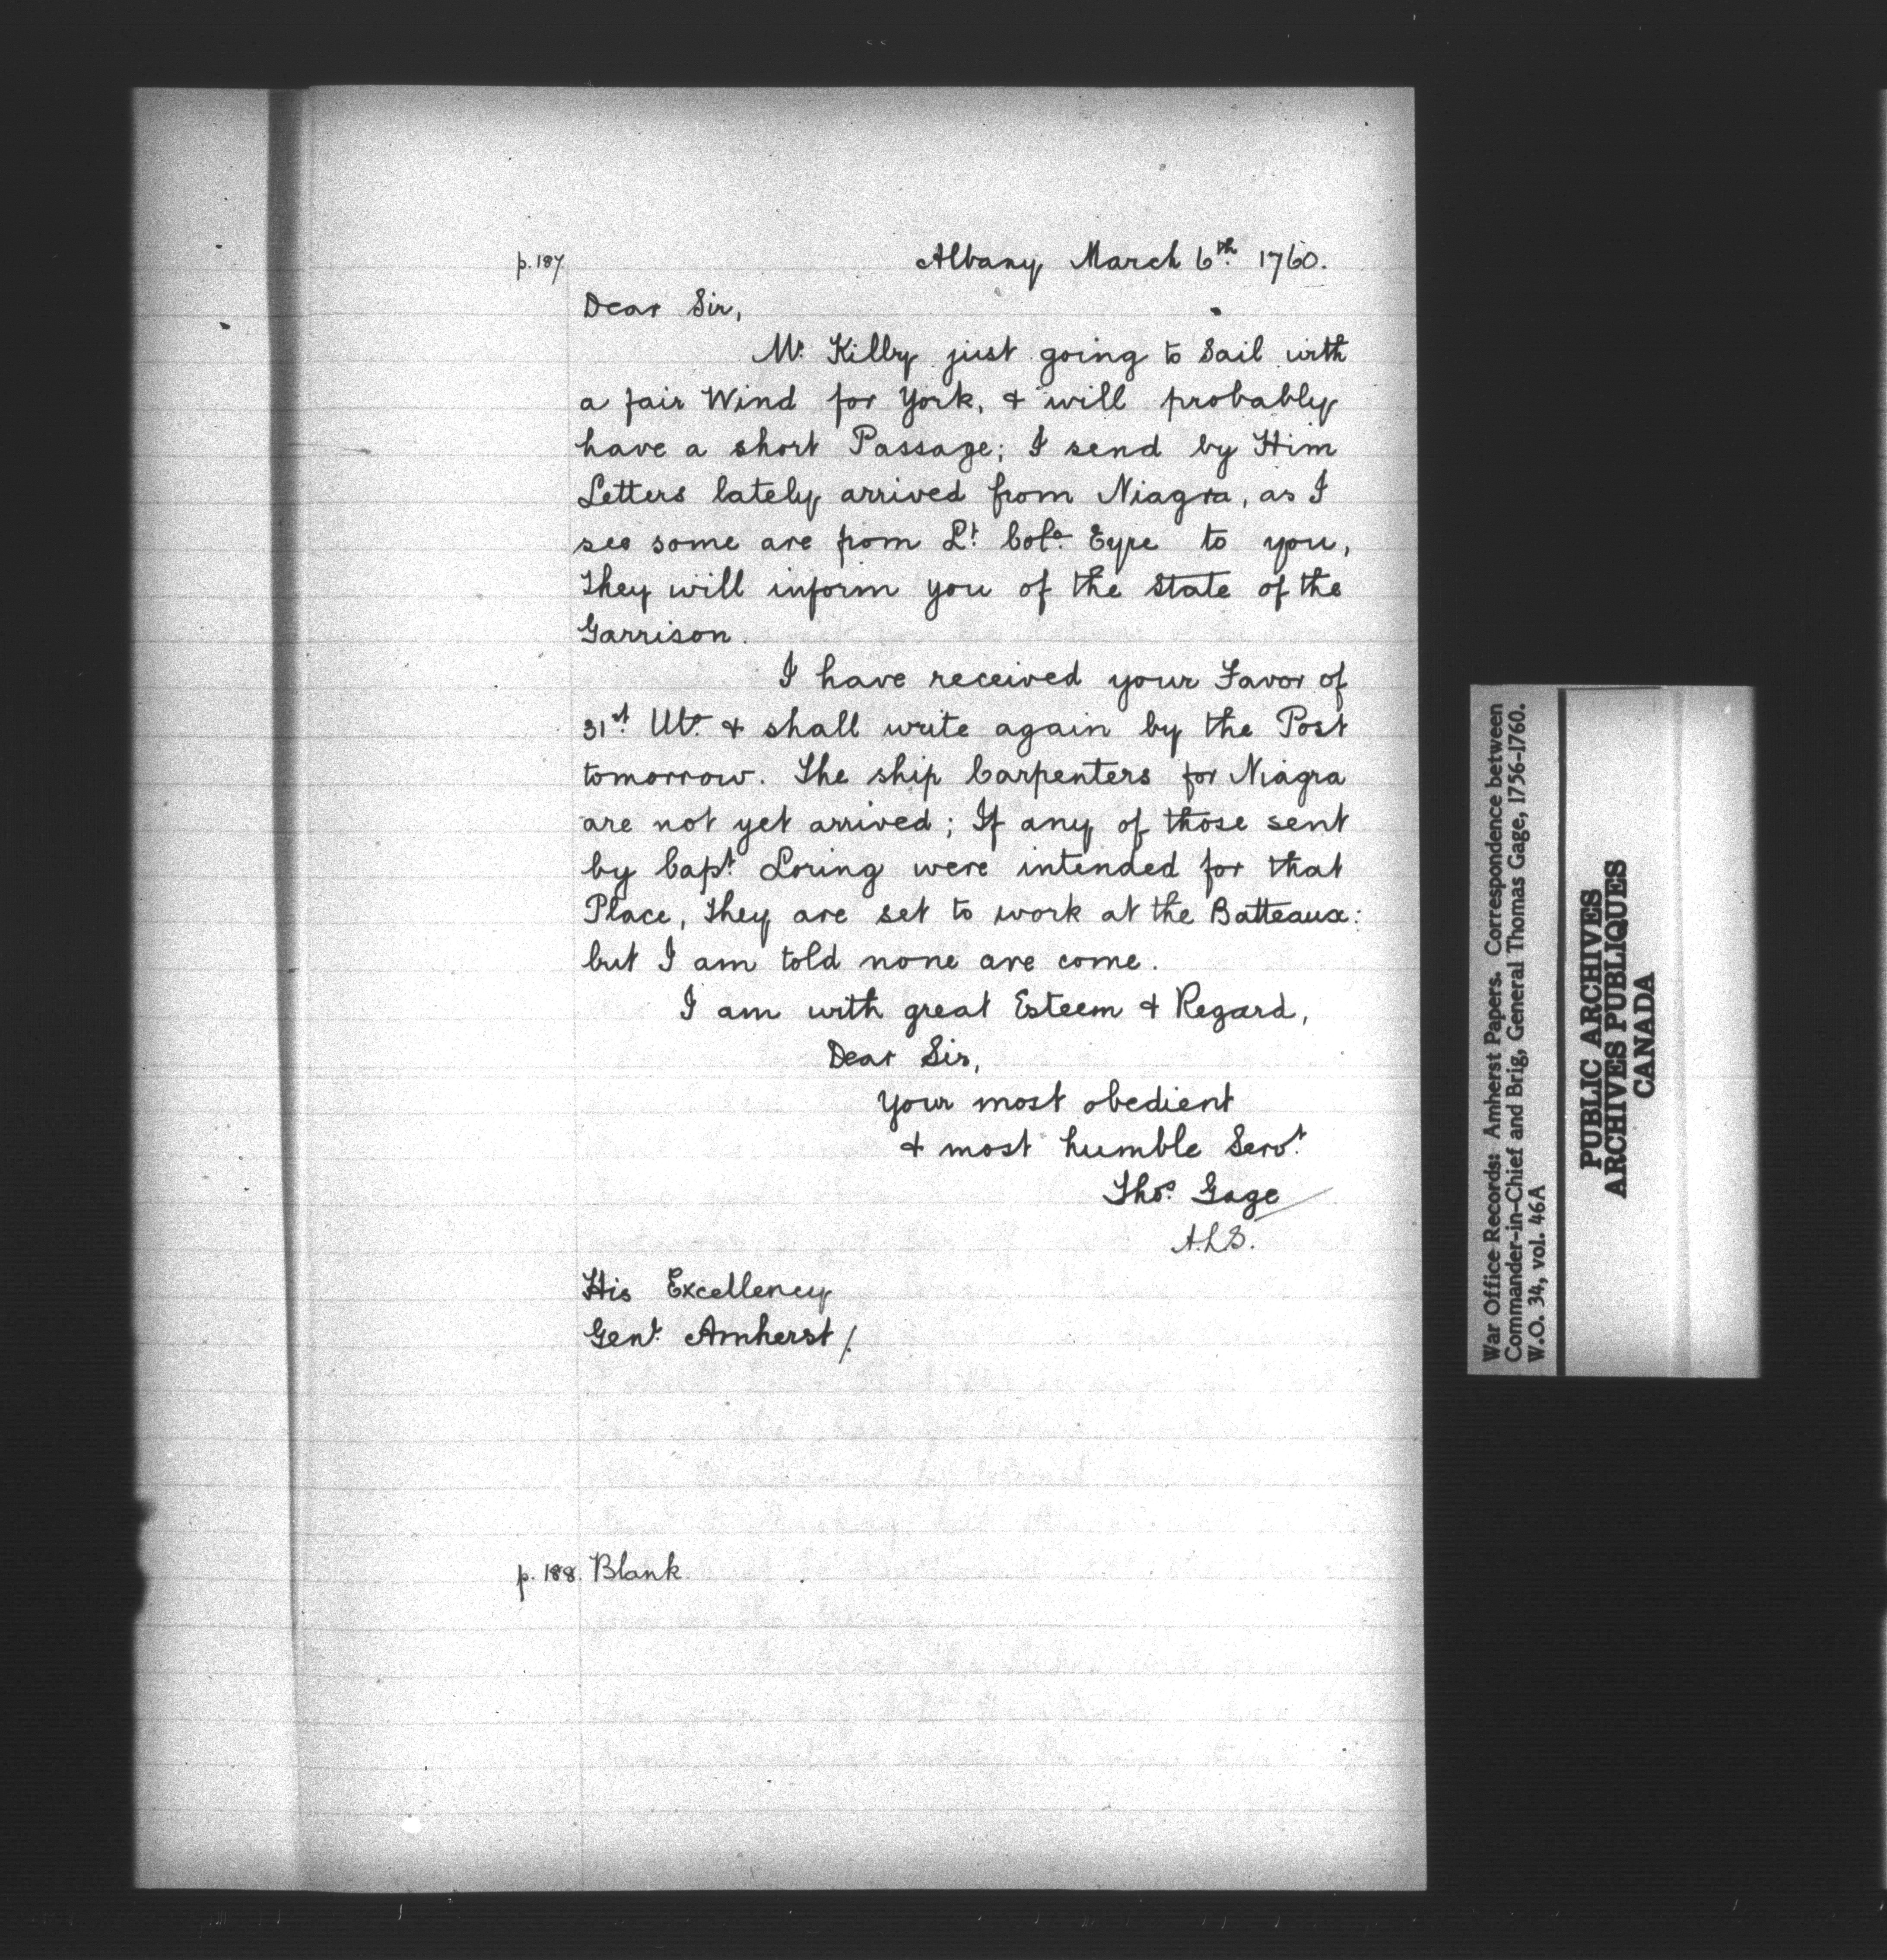 p. 187.
Albany March 6th. 1760.
Dear Sir,
Mr. Kilby just going to Sail with
a fair Wind for York, & will probably
have a short Passage; I send by Him
Letters lately arrived from Niagra, as I
see some are from Lt. Colo. Eyre to you,
They will inform you of the State of the
Garrison.
I have received your Favor of
31st. Ulto. & shall write again by the Post
tomorrow. The ship Carpenters for Niagra
are not yet arrived; If any of those sent
by Capt. Loring were intended for that
Place, they are set to work at the Batteaux:
but I am told none are come.
I am with great Esteem & Regard,
Dear Sir,
Your most obedient
& most humble Servt.
Thos. Gage
A.L.S.
His Excellency
Genl. Amherst /.
p. 188. Blank.
War Office Records: Amherst Papers. Correspondence between
Commander-in-Chief and Brig, General Thomas Gage, 1756-1760.
W.O. 34, vol. 46A
PUBLIC ARCHIVES
ARCHIVES PUBLIQUES
CANADA